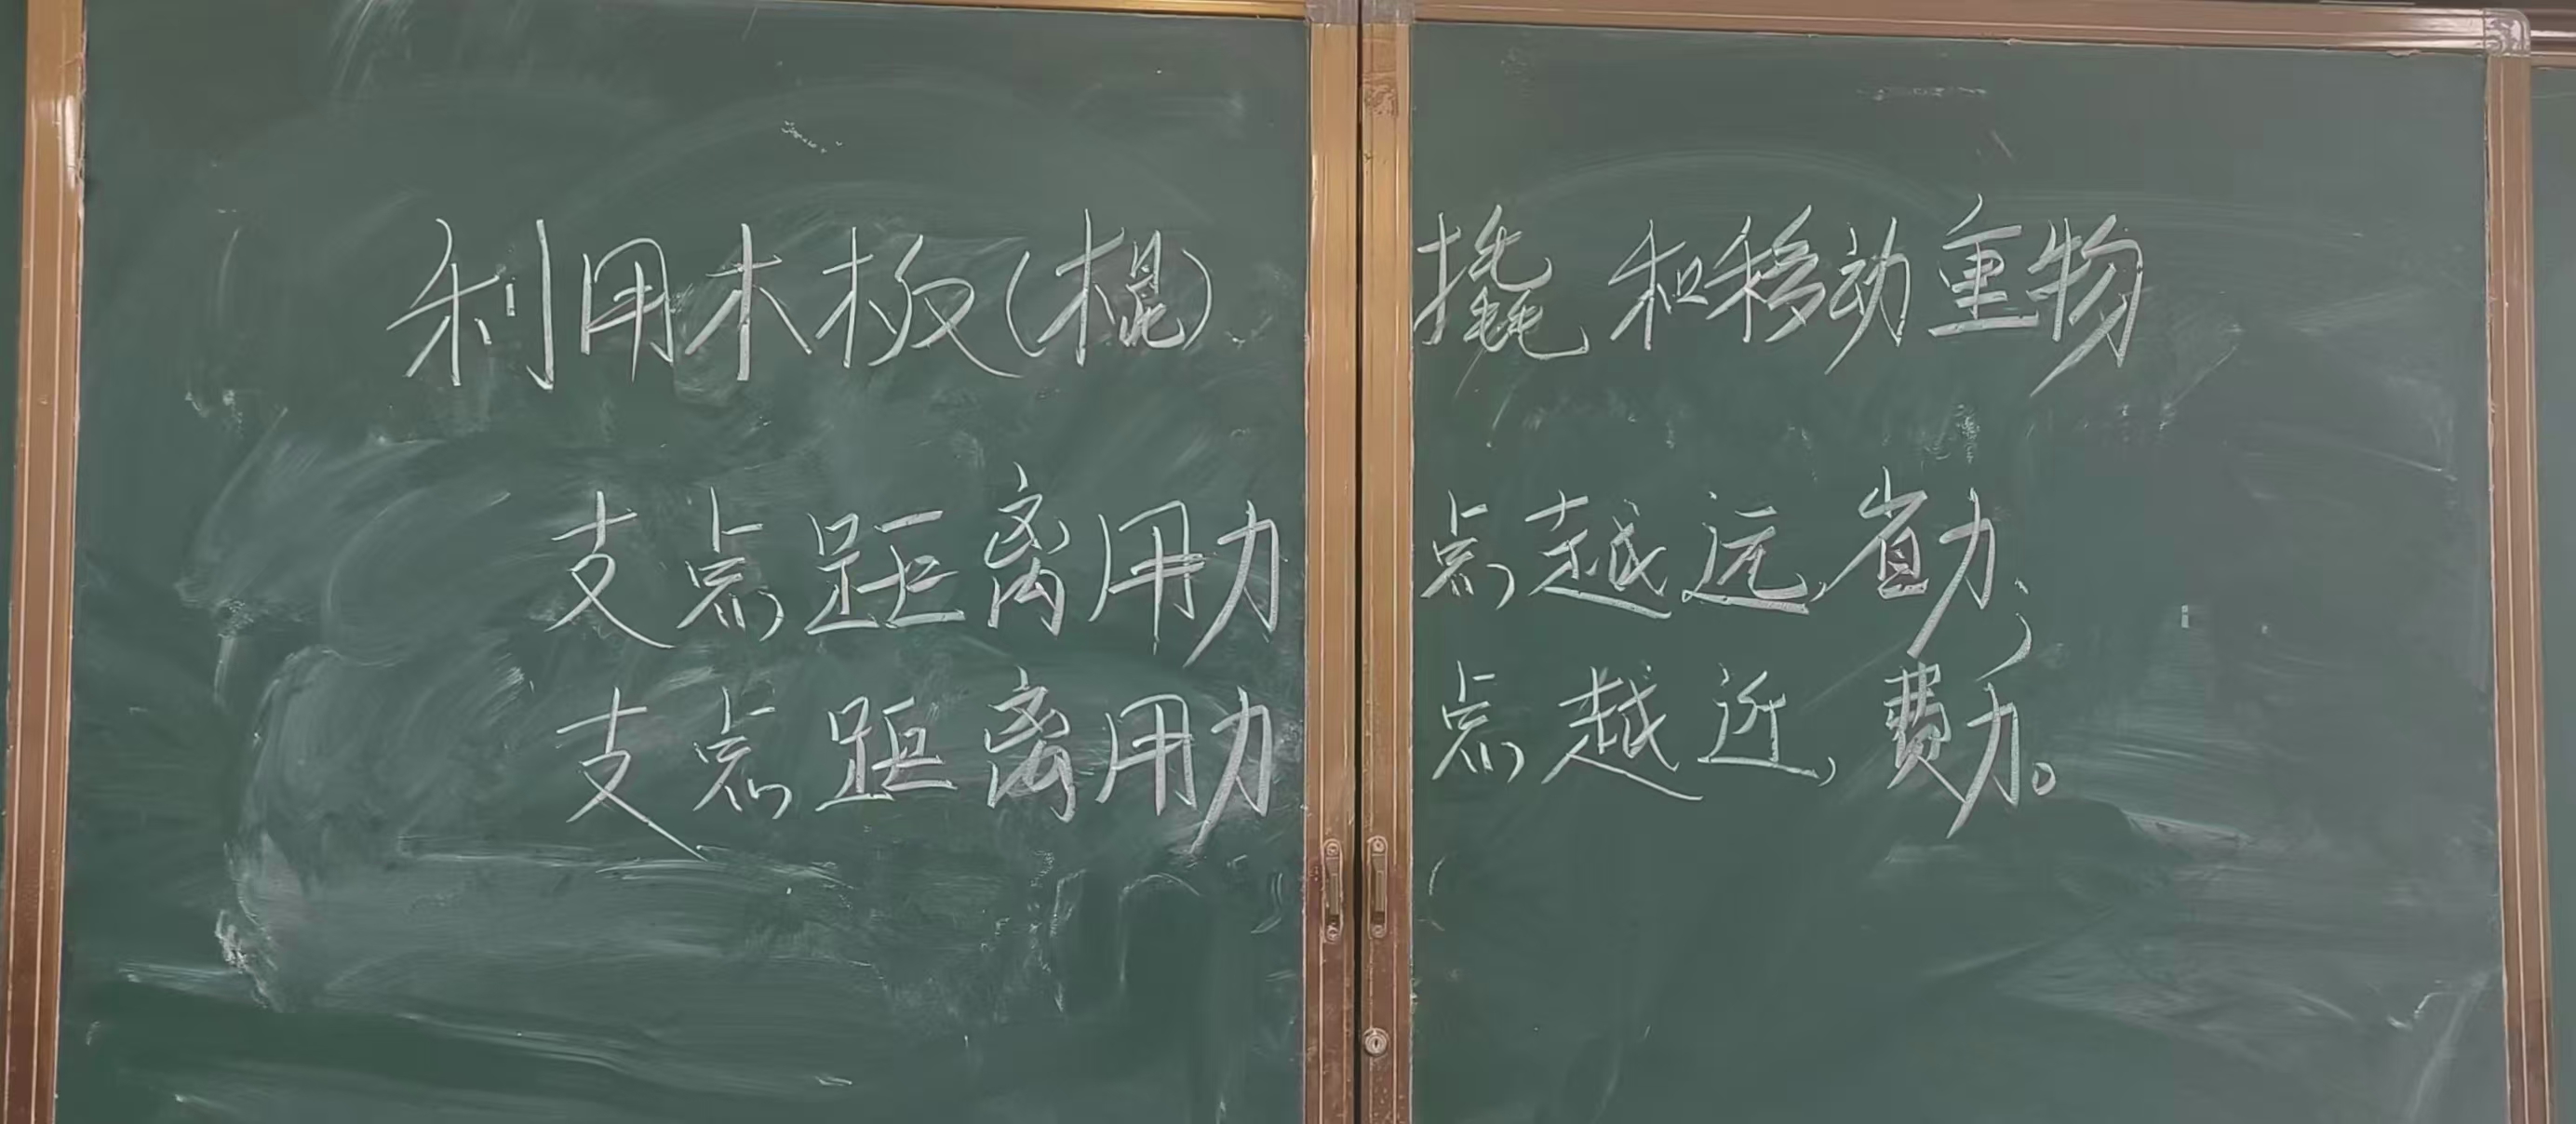 利用木板(棍)撬和移动重物
支点距离用力点越远,省力;
支点距离用力点越近,费力。